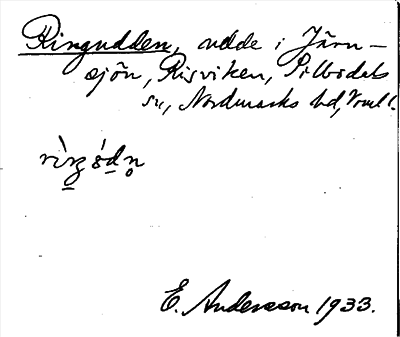 Ringudden, udde i Järn-
sjön, Risviken, Silbodals
sn, Nordmarks hd, Vrml.
E. Andersson 1933.